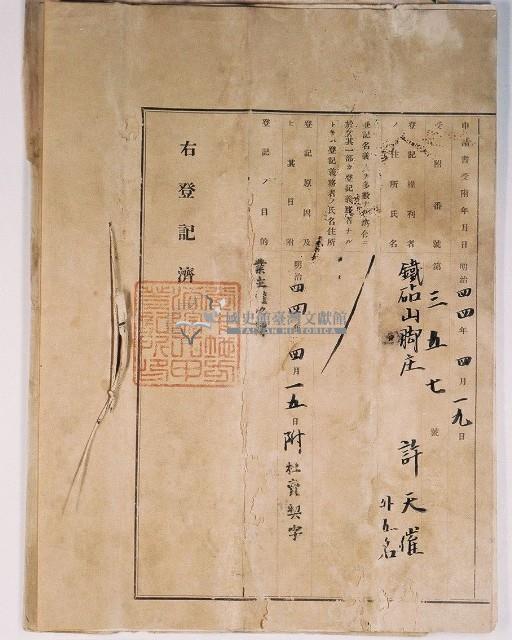 申請書受附年月日 明治四四年四月一九日
受附番號 第三五七號
登記權利者ノ住所氏名 鐵砧山脚庄 許天催 外五名
登記名義人多數ナル場合ニ於テ其一部カ登記義務者ナルトキハ登記義務者ノ氏名住所
登記原因及ヒ其日附 明治四四年四月一五日附杜賣契字
登記ノ目的 業主權
右登記濟
國史館臺灣文獻館
TAIWAN HISTORICA